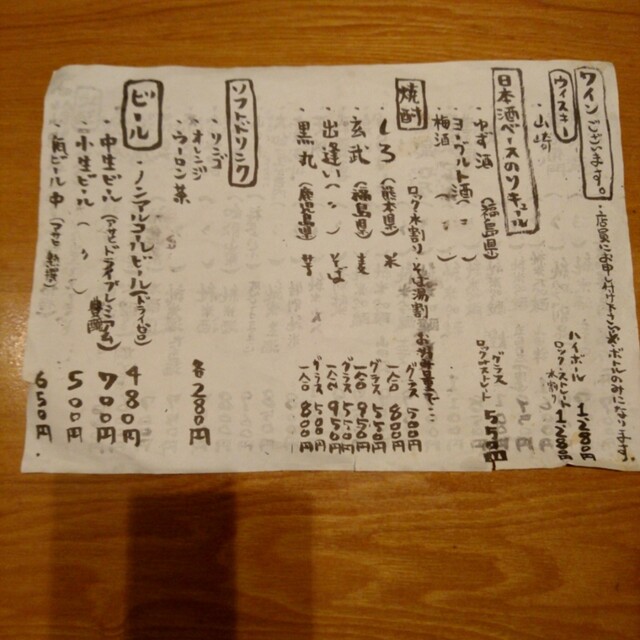 ワインございます。
・店員にお申し付け下さい。※ボールのみになります。
ウィスキー
・山崎
ハイボール 1,280円
ロック・ストレート 1,280円
水割り
日本酒ベースのリキュール
・ゆず酒(福島県)
・ヨーグルト酒(〃)
・梅酒(〃)
グラス
ロックストレート 550円
焼酎
ロック 水割り そば湯割
・しろ(熊本県)米
グラス 500円
一合 800円
・玄武(福島県)麦
グラス 550円
一合 950円
・出逢い(〃)そば
グラス 550円
一合 950円
・黒丸(鹿児島県)芋
グラス 500円
一合 800円
ソフトドリンク
・リンゴ
・オレンジ
・ウーロン茶
各280円
ビール
・ノンアルコールビール(ドライゼロ) 480円
・中生ビール(アサヒドライプレミアム豊醸) 700円
・小生ビール(〃) 500円
・瓶ビール中 650円